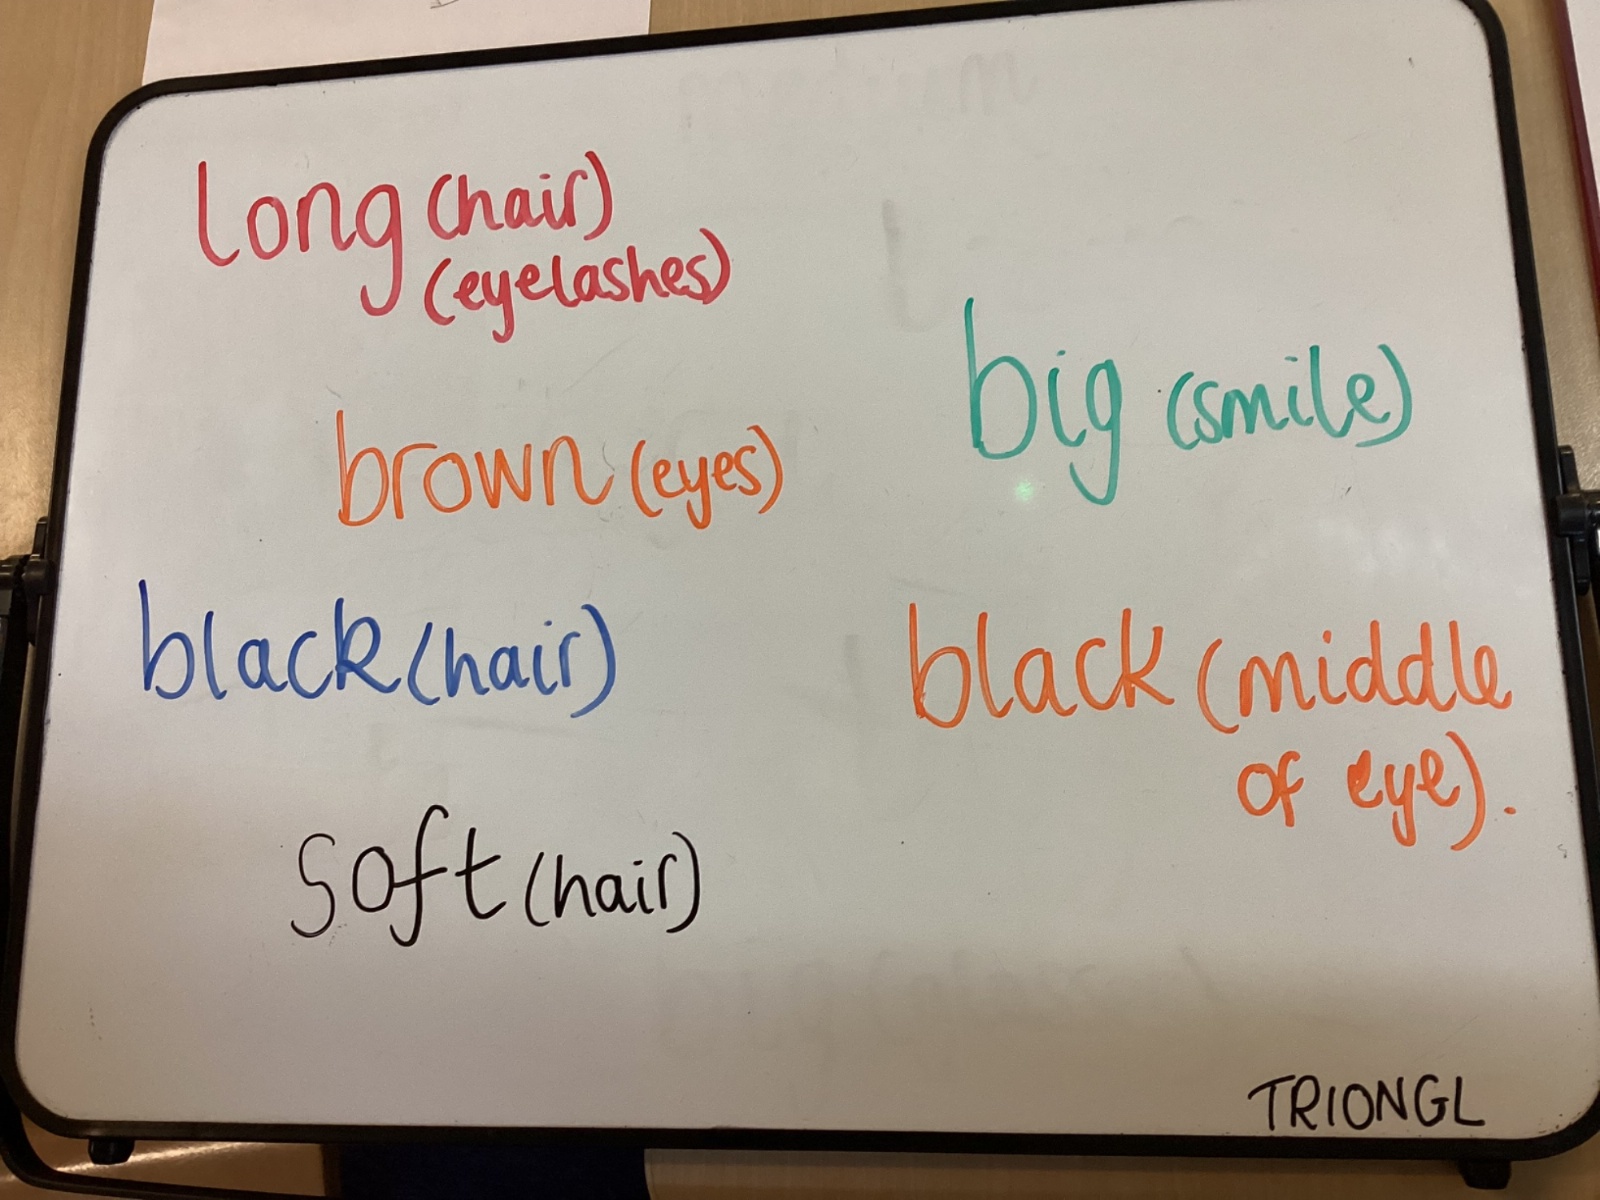 long (hair)
(eyelashes)
big (smile)
brown (eyes)
black (hair)
black (middle
of eye).
soft (hair)
TRIONGL